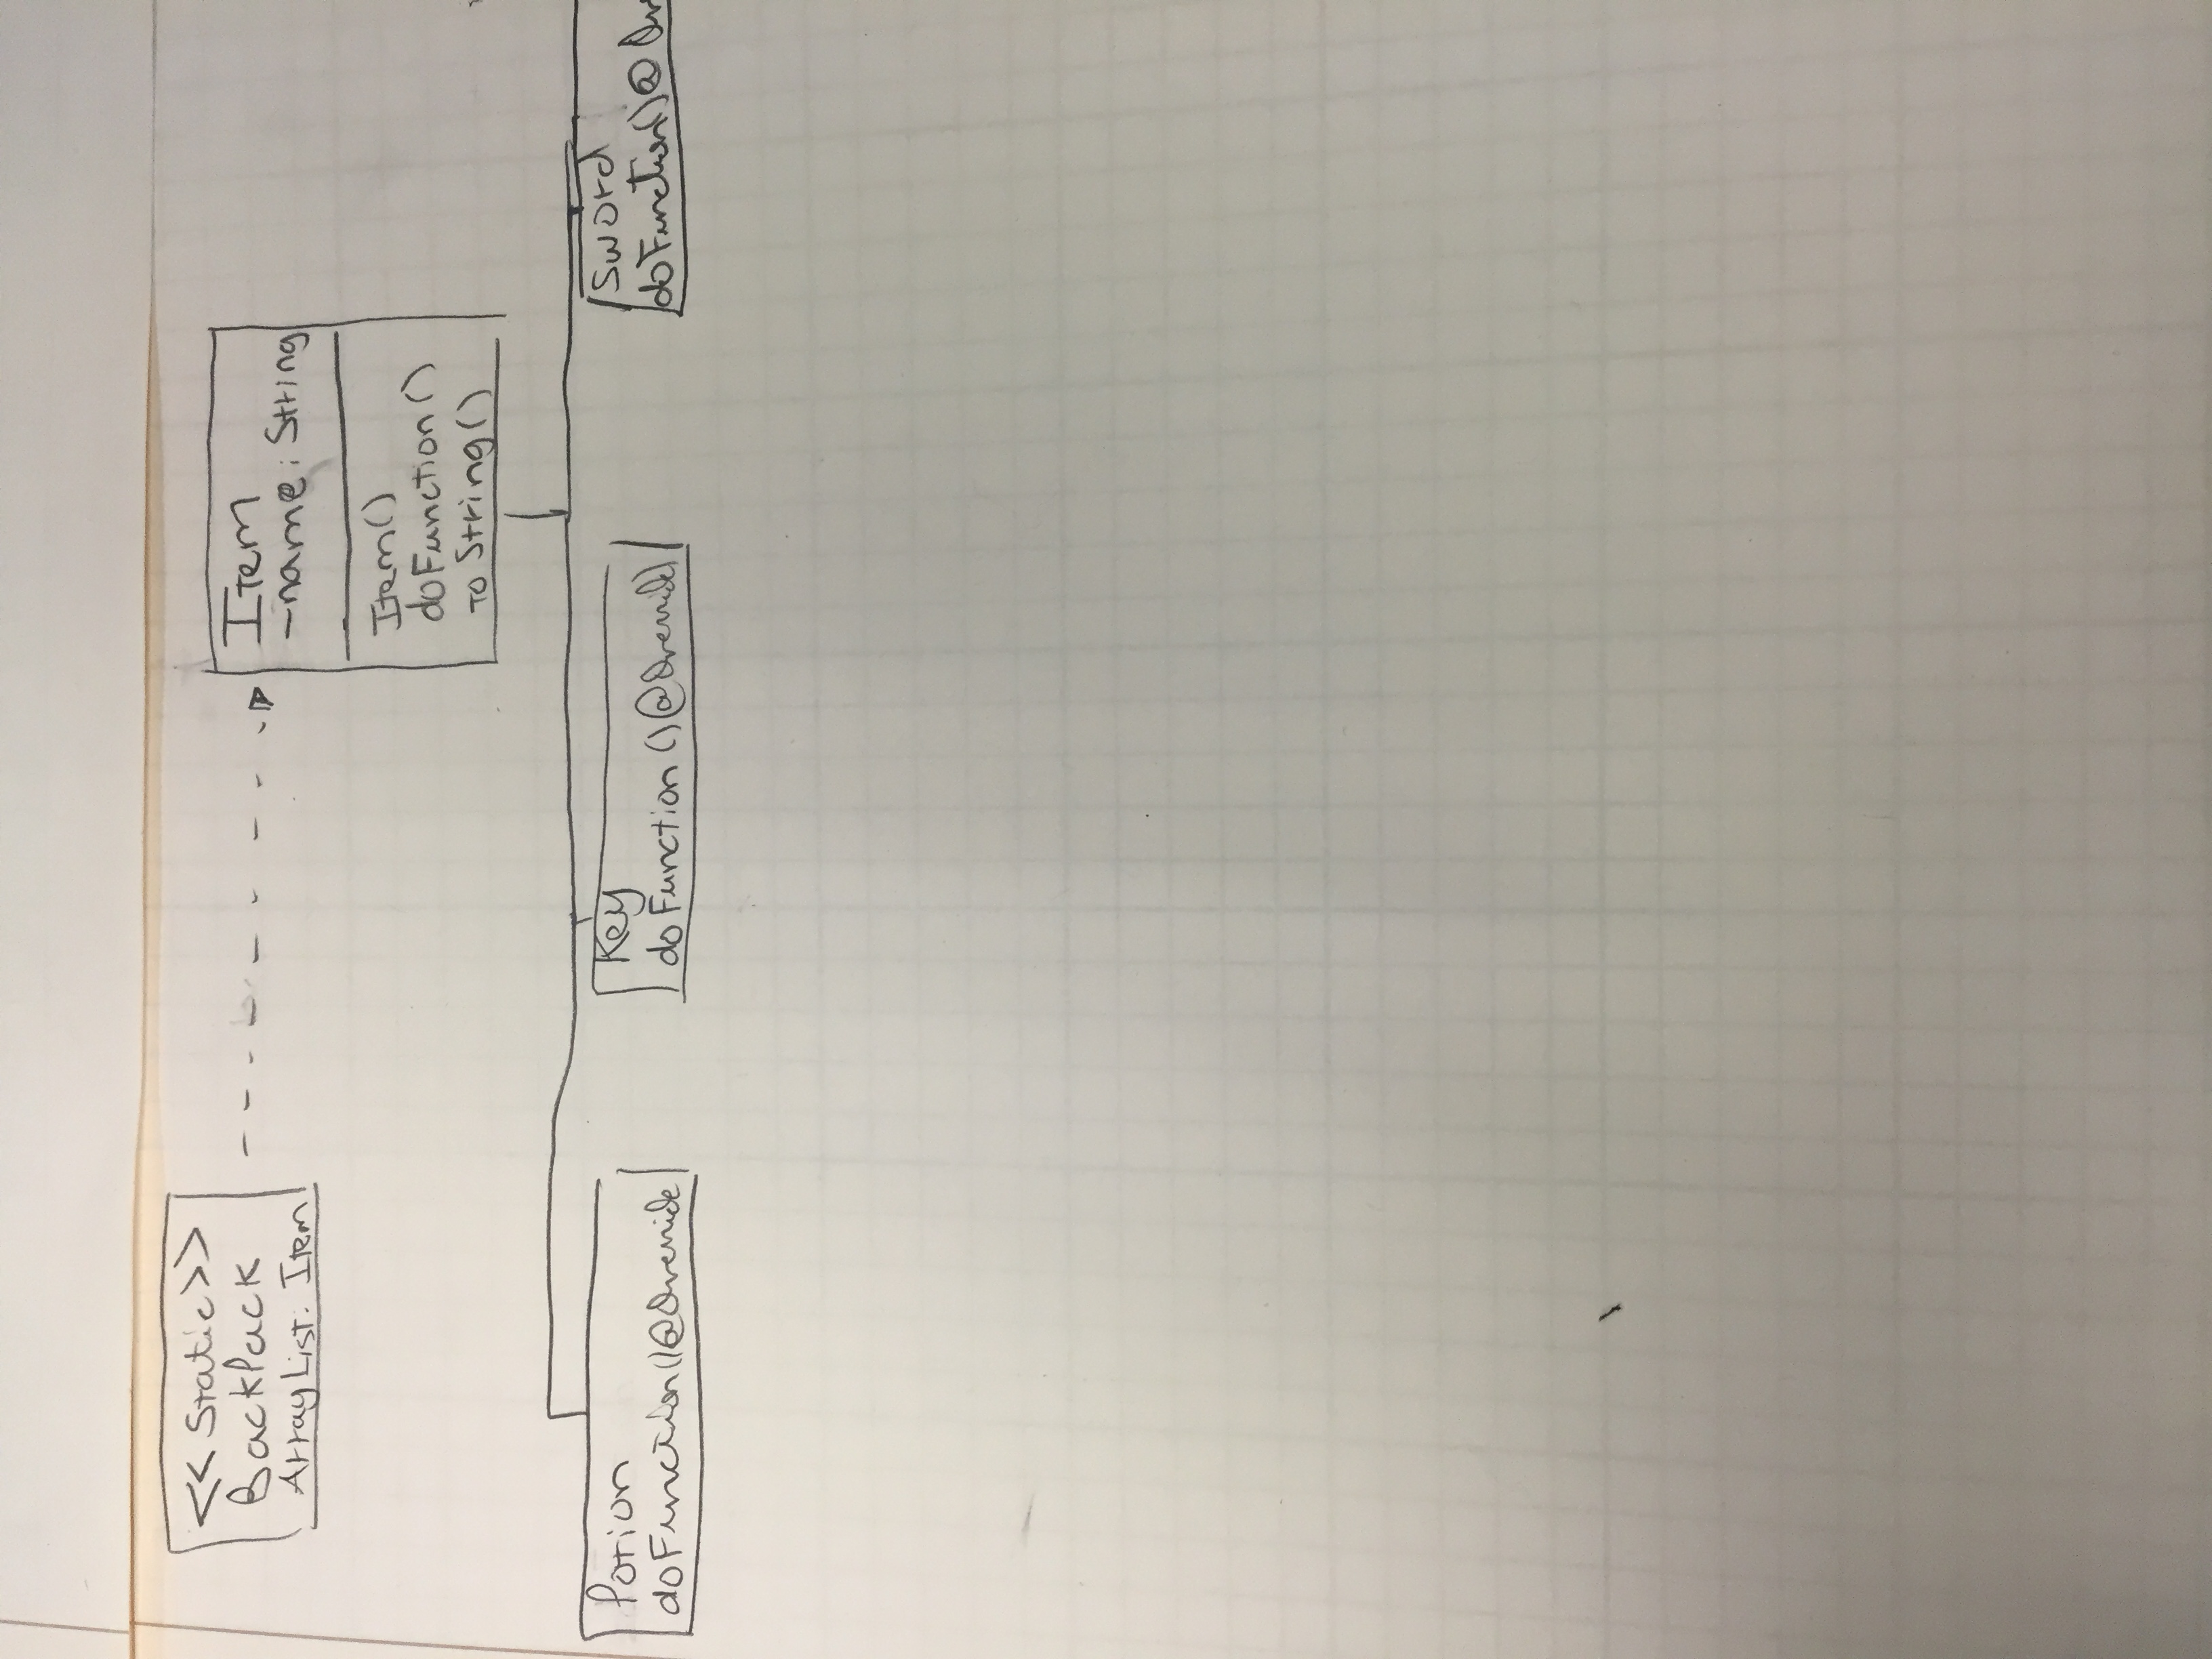 << Static >>
BackPack
ArrayList: Item
Item
-name: String
Item()
doFunction()
toString()
Potion
doFunction()@Override
Key
doFunction()@Override
Sword
doFunction()@